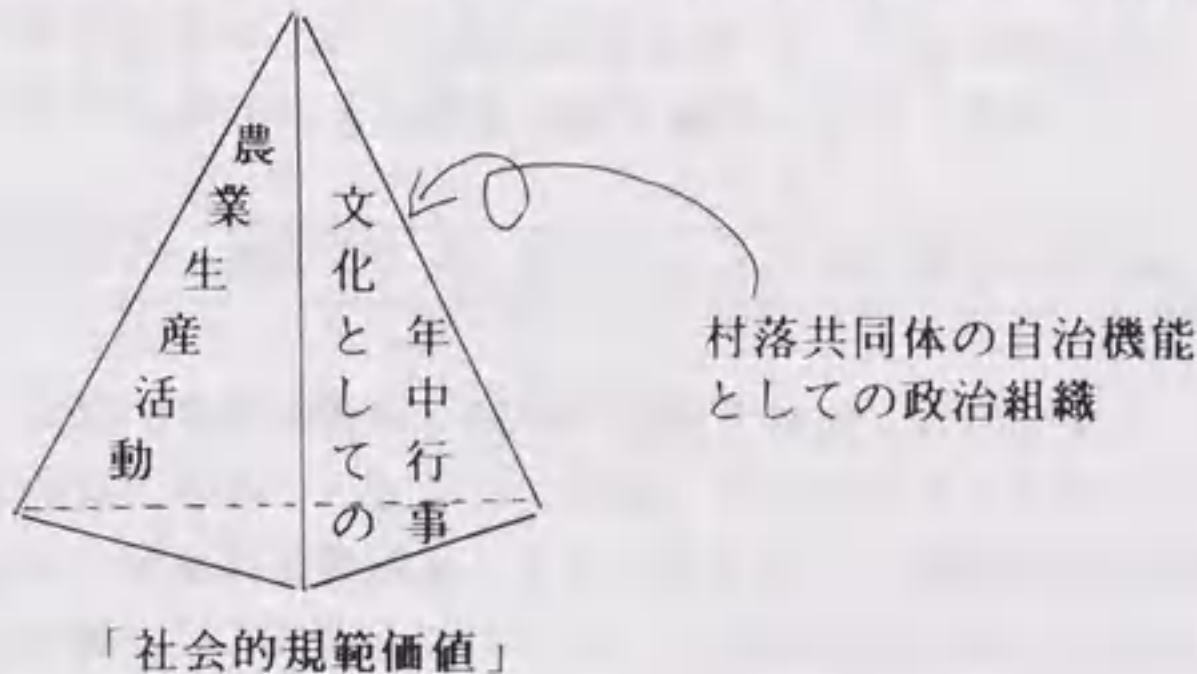 農業生産活動
文化としての
年中行事
村落共同体の自治機能
としての政治組織
「社会的規範価値」